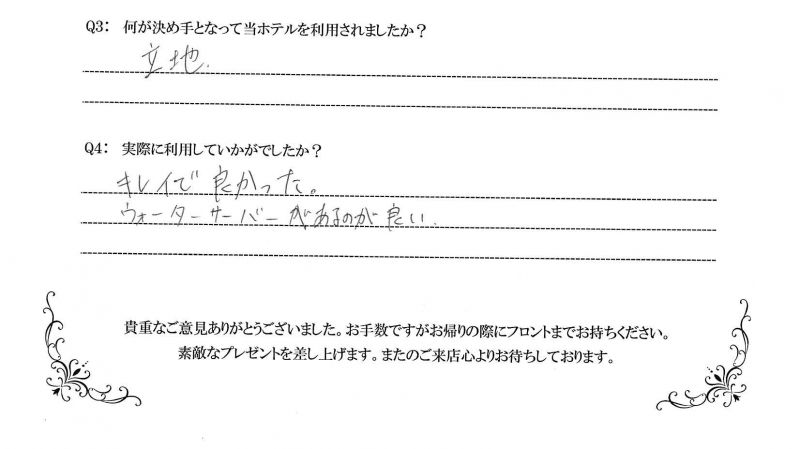 Q3: 何が決め手となって当ホテルを利用されましたか?
立地.
Q4: 実際に利用していかがでしたか?
キレイで良かった。
ウォーターサーバーがあるのが良い.
貴重なご意見ありがとうございました。お手数ですがお帰りの際にフロントまでお持ちください。
素敵なプレゼントを差し上げます。またのご来店心よりお待ちしております。